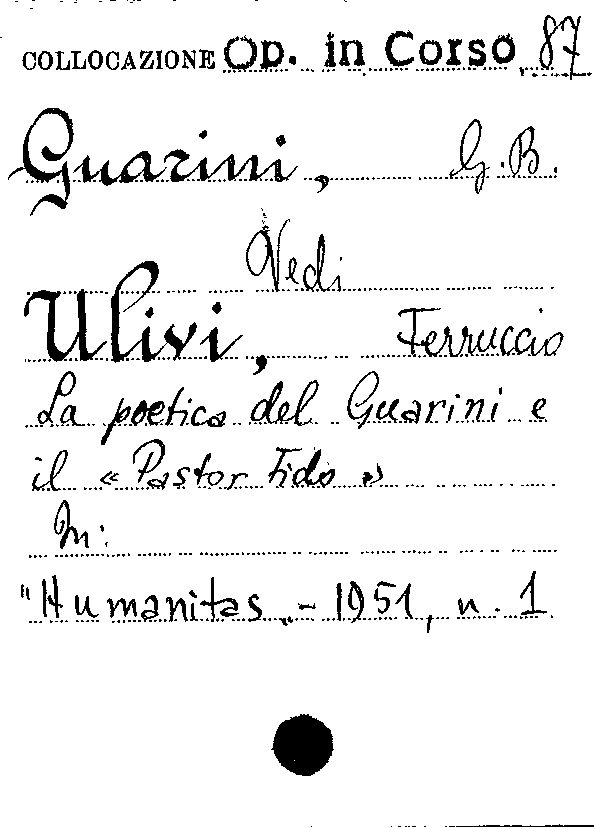 COLLOCAZIONE Op. in Corso 87
Guarini, G.B.
Vedi
Ulivi, Ferruccio
La poetica del Guarini e
il « Pastor Fido »
In:
"Humanitas„ - 1951, n. 1